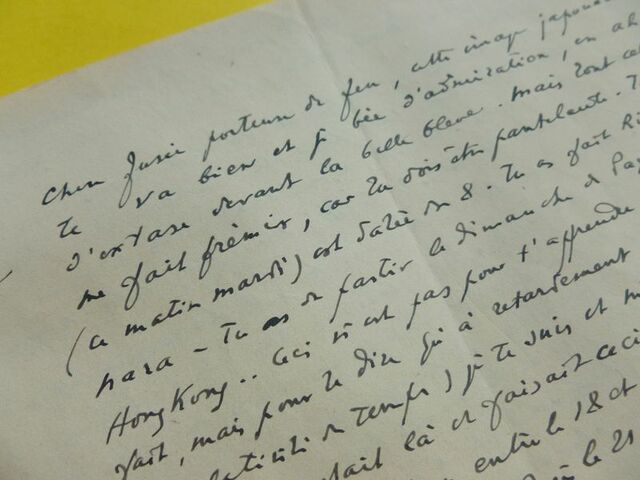 Chère fusée porteuse de feu, cette image japonaise
te va bien et je bée d'admiration, en
d'extase devant la belle bleue. Mais tout
me fait frémir, car tu dois être pantelante. T
(ce matin mardi) est datée du 8. Tu as fait
para - Tu as dû partir le dimanche de
Hong Kong.. Ceci n'est pas pour t'apprendre
fait, mais pour te dire qu'à retardement
du temps) je te suis et
fait là et faisait ceci
entre le 18 et
le 21